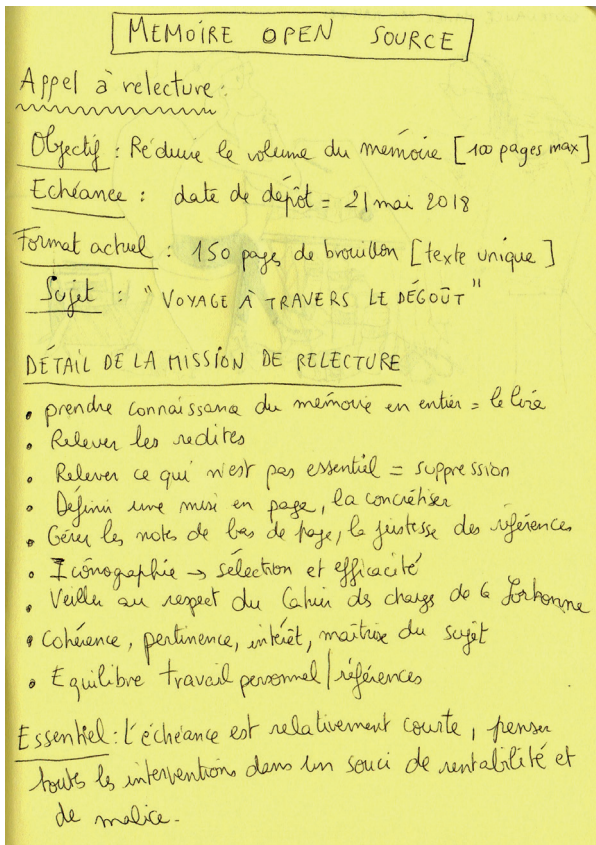 MEMOIRE OPEN SOURCE
Appel à relecture :
Objectif : Réduire le volume du mémoire [100 pages max]
Echéance : date de dépôt = 21 mai 2018
Format actuel : 150 pages de brouillon [texte unique]
Sujet : "VOYAGE À TRAVERS LE DÉGOÛT"
DÉTAIL DE LA MISSION DE RELECTURE
• prendre connaissance du mémoire en entier = le lire
• Relever les redites
• Relever ce qui n'est pas essentiel = suppression
• Définir une mise en page, la concrétiser
• Gérer les notes de bas de page, la justesse des références
• Iconographie → sélection et efficacité
• Veiller au respect du Cahier des charges de la Sorbonne
• Cohérence, pertinence, intérêt, maîtrise du sujet
• Equilibre travail personnel / références
Essentiel : L'échéance est relativement courte, penser
toutes les interventions dans un souci de rentabilité et
de malice.